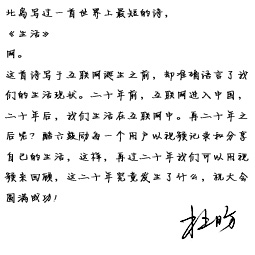 北岛写过一首世界上最短的诗，
《生活》
网。
这首诗写于互联网诞生之前，却准确语言了我
们的生活现状。二十年前，互联网进入中国，
二十年后，我们生活在互联网中。再二十年之
后呢？酷六鼓励每一个用户以视频记录和分享
自己的生活，这样，再过二十年我们可以用视
频来回顾，这二十年究竟发生了什么，祝大会
圆满成功！